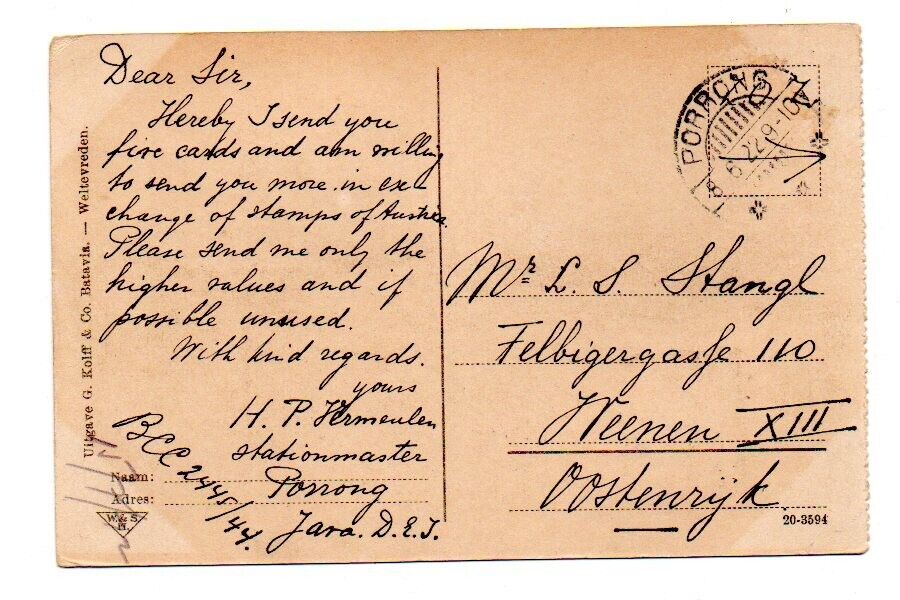 Dear Sir,
Hereby I send you
five cards and am willing
to send you more in ex-
change of stamps of Austria.
Please send me only the
higher values and if
possible unused.
With kind regards.
yours
H. P. Vermeulen
Stationmaster
Porrong
Java. D.E.I.
BCC 2445/44.
Naam:
Adres:
W.& S.
H.
Uitgave G. Kolff & Co. Batavia. — Weltevreden.
PORRONG
Mr. L. S. Stangl
Felbigergasse 110
Weenen XIII
Oostenrijk
20-3594